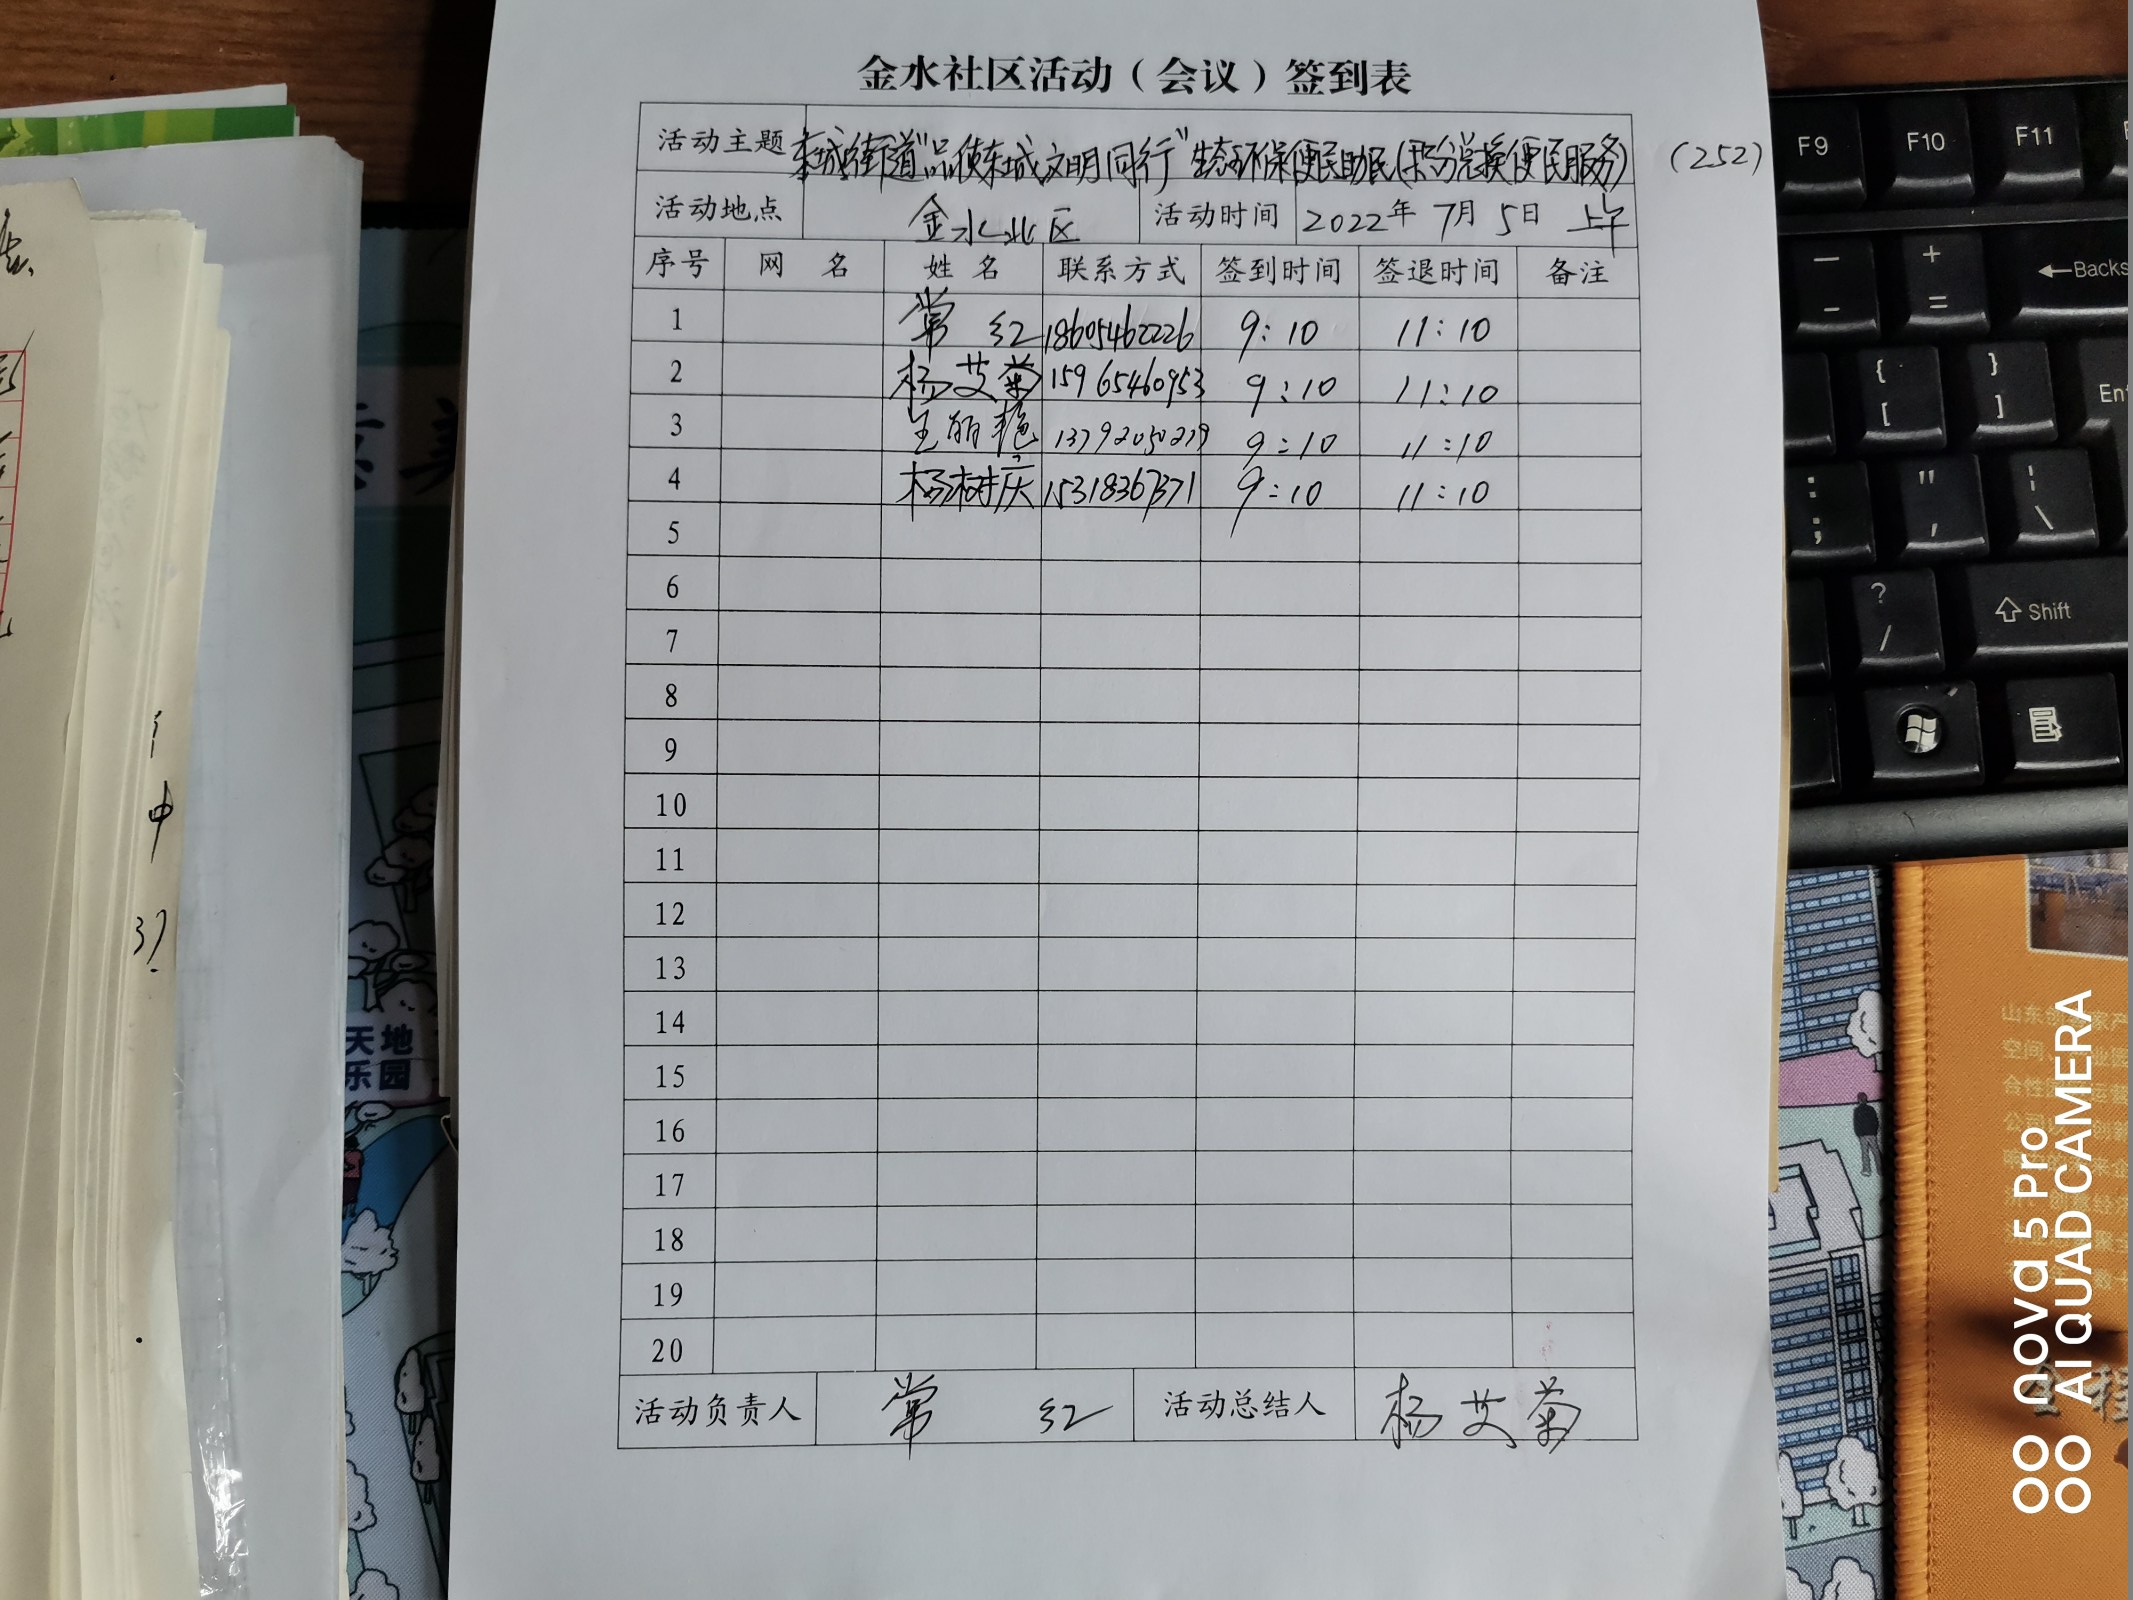 金水社区活动（会议）签到表
活动主题 东城街道"品质东城文明同行"生态环保便民助民(积分兑换便民服务) (252)
活动地点 金水北区 活动时间 2022年 7月 5日 上午
序号 网 名 姓 名 联系方式 签到时间 签退时间 备注
1 常 红 18605462226 9:10 11:10
2 杨艾菊 15965460953 9:10 11:10
3 王丽艳 13792050279 9:10 11:10
4 杨树庆 15318367371 9:10 11:10
5
6
7
8
9
10
11
12
13
14
15
16
17
18
19
20
活动负责人 常 红 活动总结人 杨艾菊
F9 F10 F11
Backs
Shift
中
37
天地
乐园
nova 5 Pro
AI QUAD CAMERA